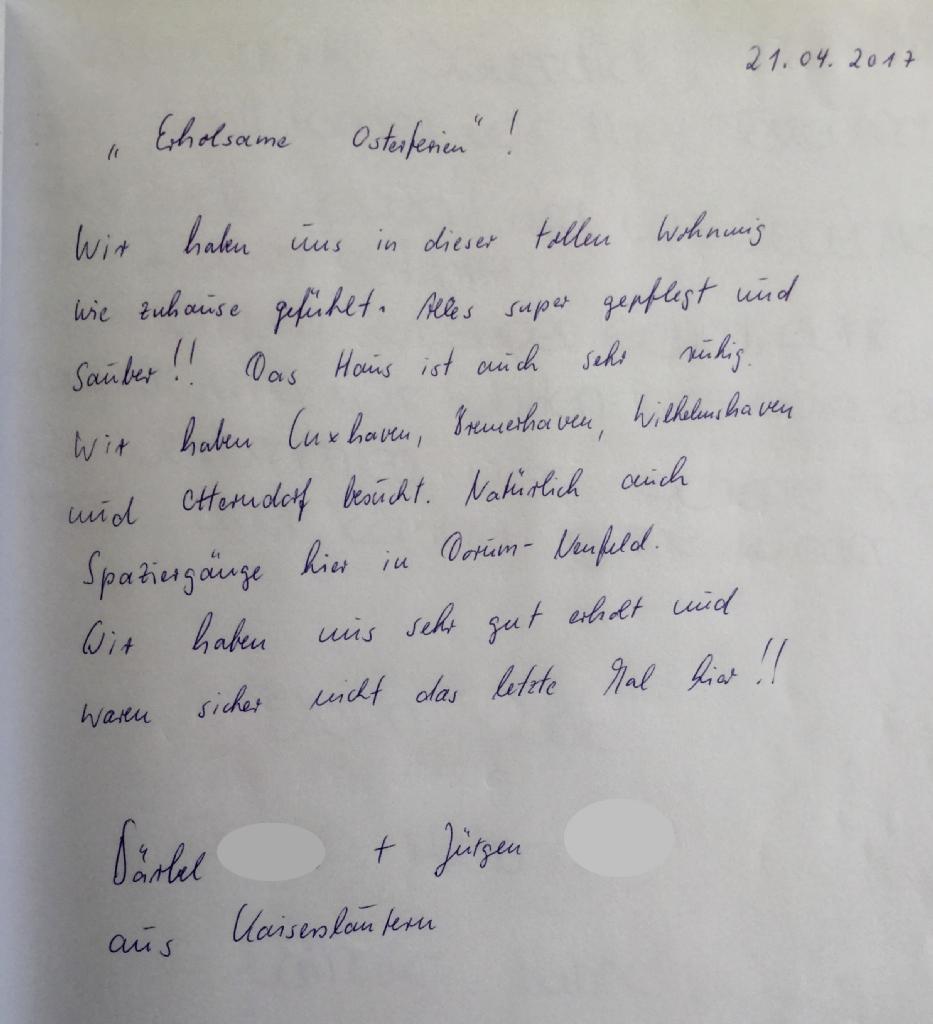 21.04.2017
„Erholsame Osterferien“!
Wir haben uns in dieser tollen Wohnung
wie zuhause gefühlt. Alles super gepflegt und
sauber!! Das Haus ist auch sehr ruhig.
Wir haben Cuxhaven, Bremerhaven, Wilhelmshaven
und Otterndorf besucht. Natürlich auch
Spaziergänge hier in Dorum-Neufeld.
Wir haben uns sehr gut erholt und
waren sicher nicht das letzte Mal hier!!
Bärbel + Jürgen
aus Kaiserslautern